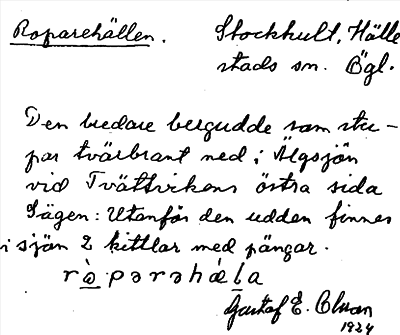 Roparehällen. Stockhult, Hälle
stads sn. Ögl.
Den bredare bergudde som stu-
par tvärbrant ned i Älgsjön
vid Tvättvikens östra sida
Sägen: Utanför den udden finnes
i sjön 2 kittlar med pängar.
rò̱pərəhǽḻa
Gustaf E. Olson
1924